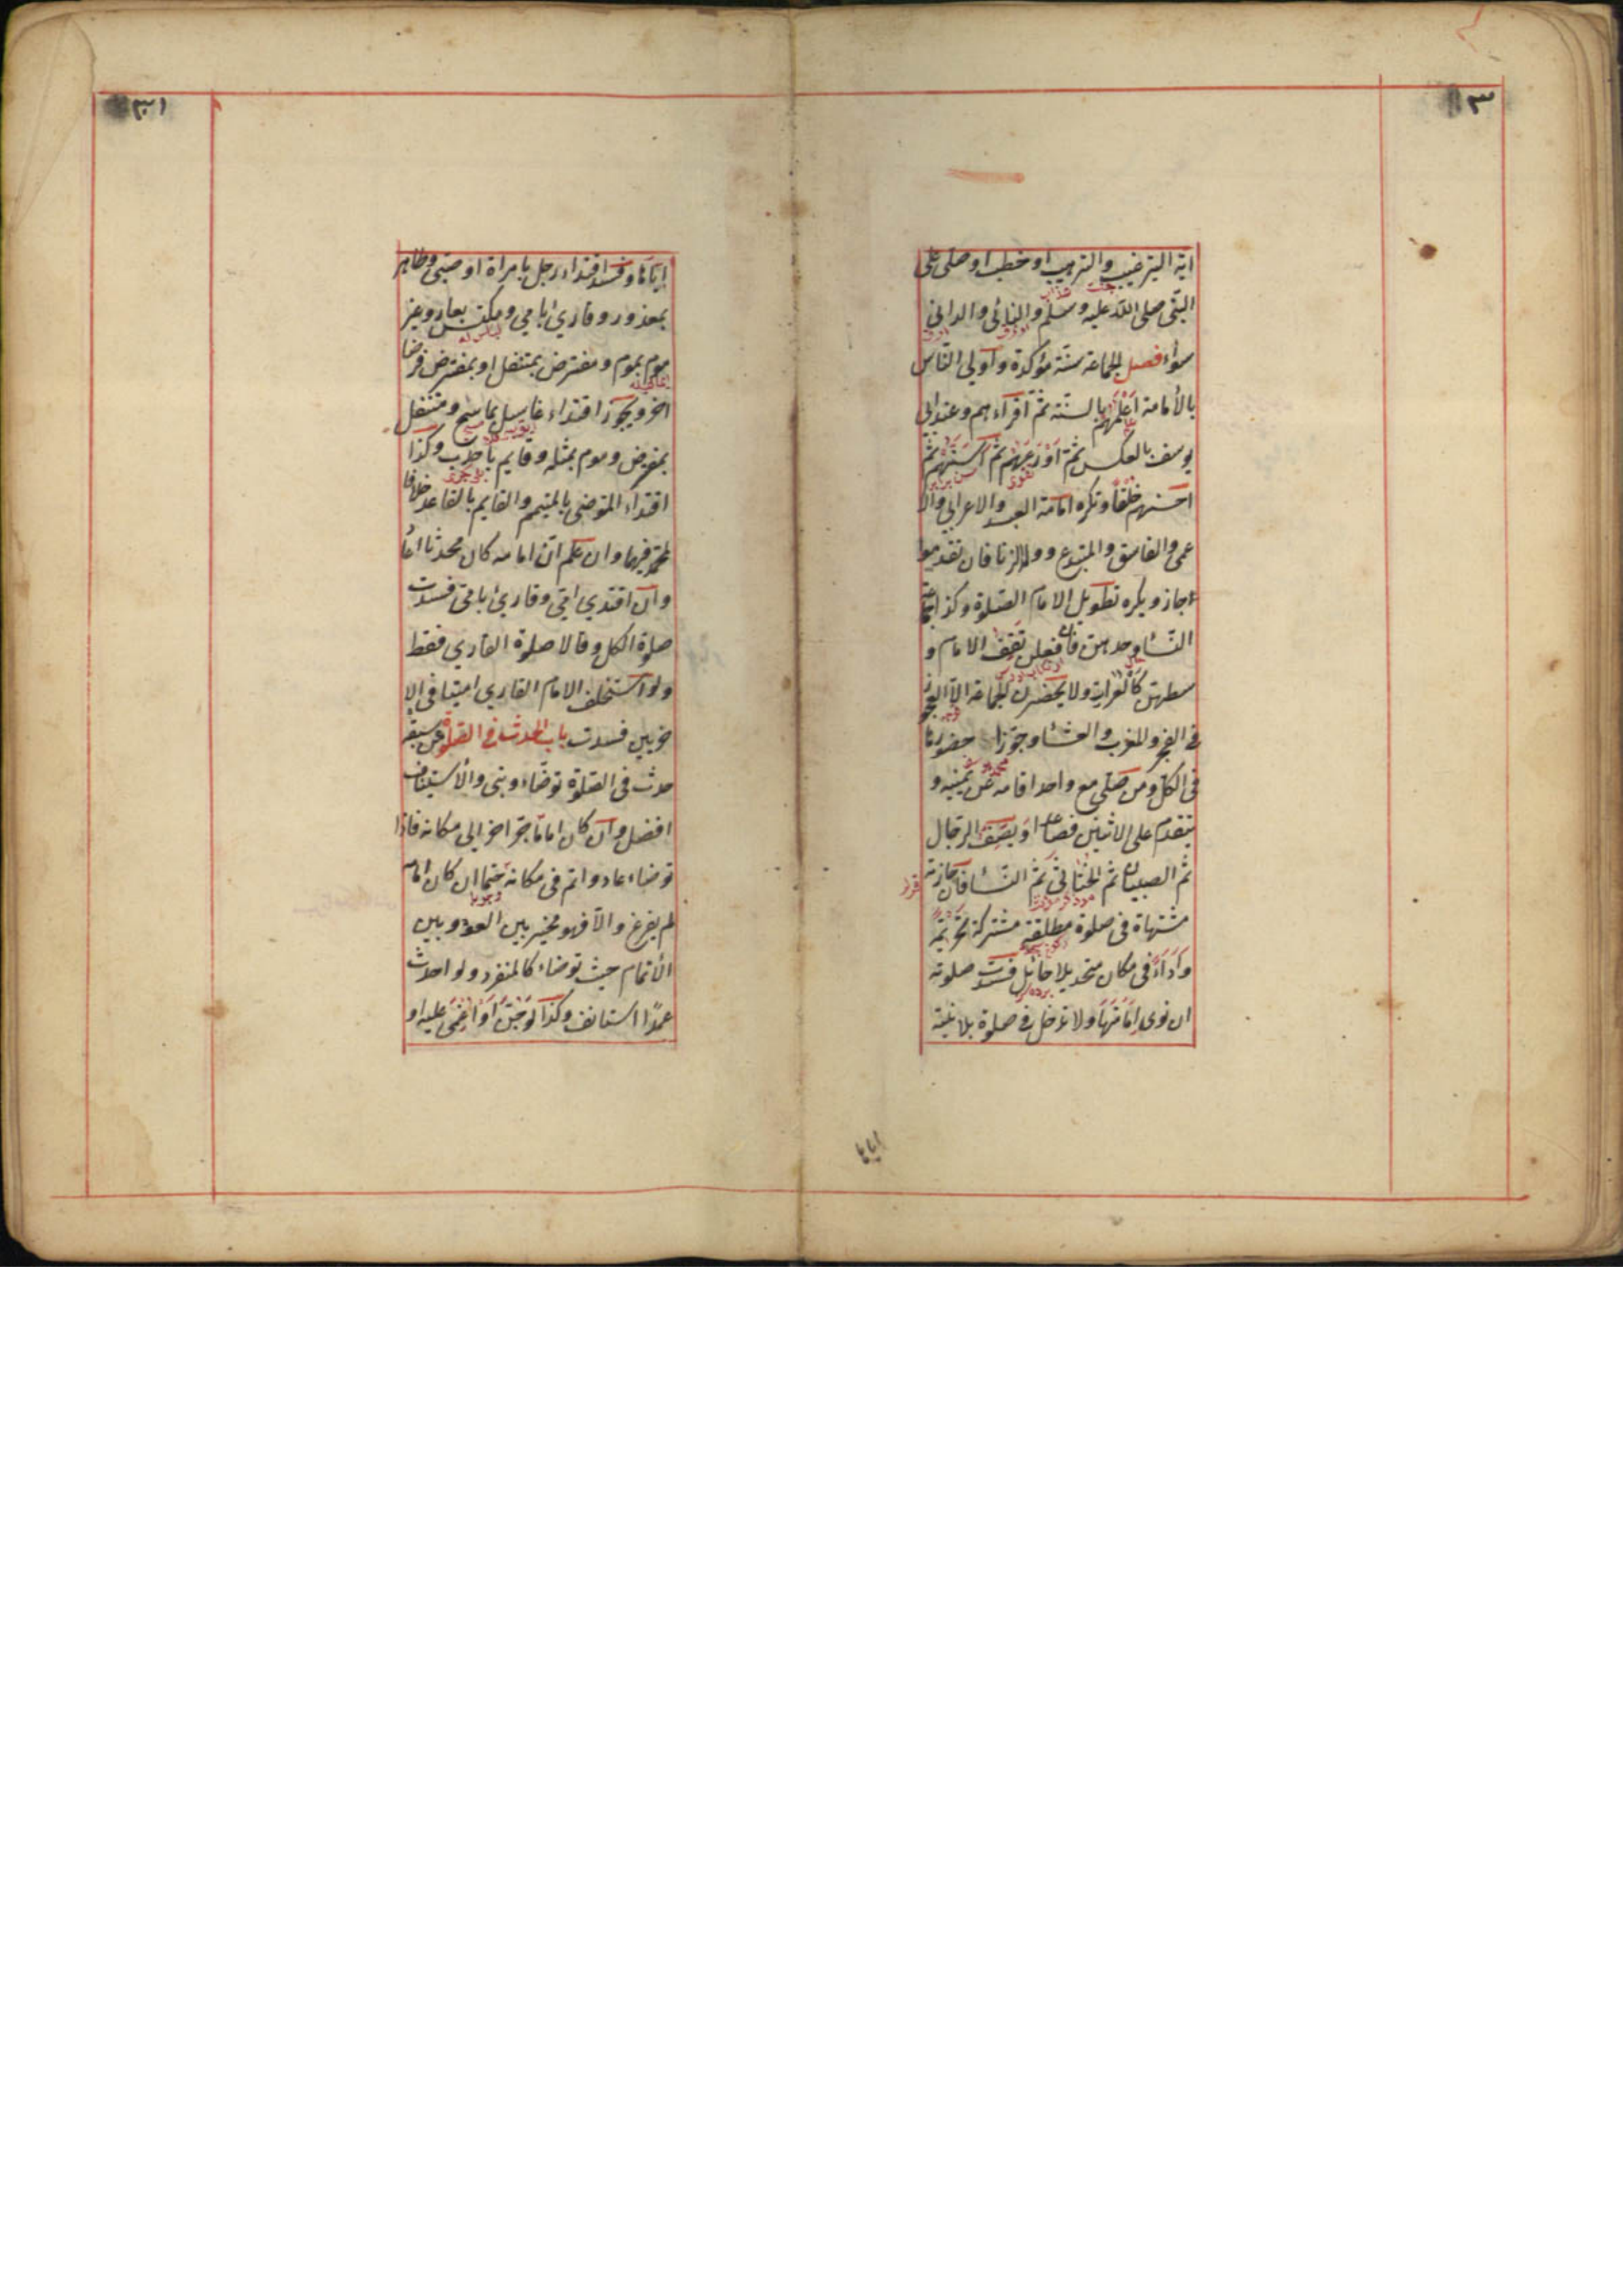 ٣
اية الترغيب والترهيب او خطب او صلى على
النبى صلى الله عليه وسلم والنائى والدانى
سواء فصل الجماعة سنة مؤكدة واولى الناس
بالأمامة اعلمهم بالسنة ثم اقراءهم وعند ابى
يوسف بالعكس ثم اورعهم ثم اسنهم ثم
احسنهم خلقا وتكره امامة العبد والاعرابى والا
عمى والفاسق والمبتدع وولد الزنا فان تقدموا
جاز ويكره تطويل الامام الصلوة وكذا جماعة
النساء وحدهن فان فعلن تقف الامام و
سطهن كالعراة ولا يحضرن الجماعة الا العجوز
فى الفجر والمغرب والعشاء وجوزا حضورها
فى الكل ومن صلى مع واحد اقامه عن يمينه و
يتقدم على الاثنين فصاعدا ويصف الرجال
ثم الصبيان ثم الخناثى ثم النساء فان حاذته
مشتهاة فى صلوة مطلقة مشتركة تحريمة
وأداء فى مكان متحد بلا حائل فسدت صلوته
ان نوى امامتها ولا تدخل فى صلوة بلا نية
اياها
٣١
اياها وفسد اقتداء رجل بامراة او صبى وطاهر
بمعذور وقارئ بامي ومكتس بعار وغير
موم بموم ومفترض بمتنفل او بمفترض فرضا
اخر ويجوز اقتداء غاسل بماسح ومتنفل
بمفترض وموم بمثله وقايم باحدب وكذا
اقتداء المتوضى بالمتيمم والقايم بالقاعد خلافا
لمحمد فيهما وان علم ان امامه كان محدثا اعاد
وان اقتدي امي وقارئ بامي فسدت
صلوة الكل وقالا صلوة القاري فقط
ولو استخلف الامام القاري اميا فى الا
خريين فسدت باب الحدث فى الصلوة من سبقه
حدث فى الصلوة توضاء وبنى والأستيناف
افضل وان كان اماما جر اخر الى مكانه فاذا
توضاء عاد واتم فى مكانه حتما ان كان امامه
لم يفرغ والا فهو مخير بين العود وبين
الأتمام حيث توضاء كالمنفرد ولو احدث
عمدا استانف وكذا لو جن او اغمى عليه او